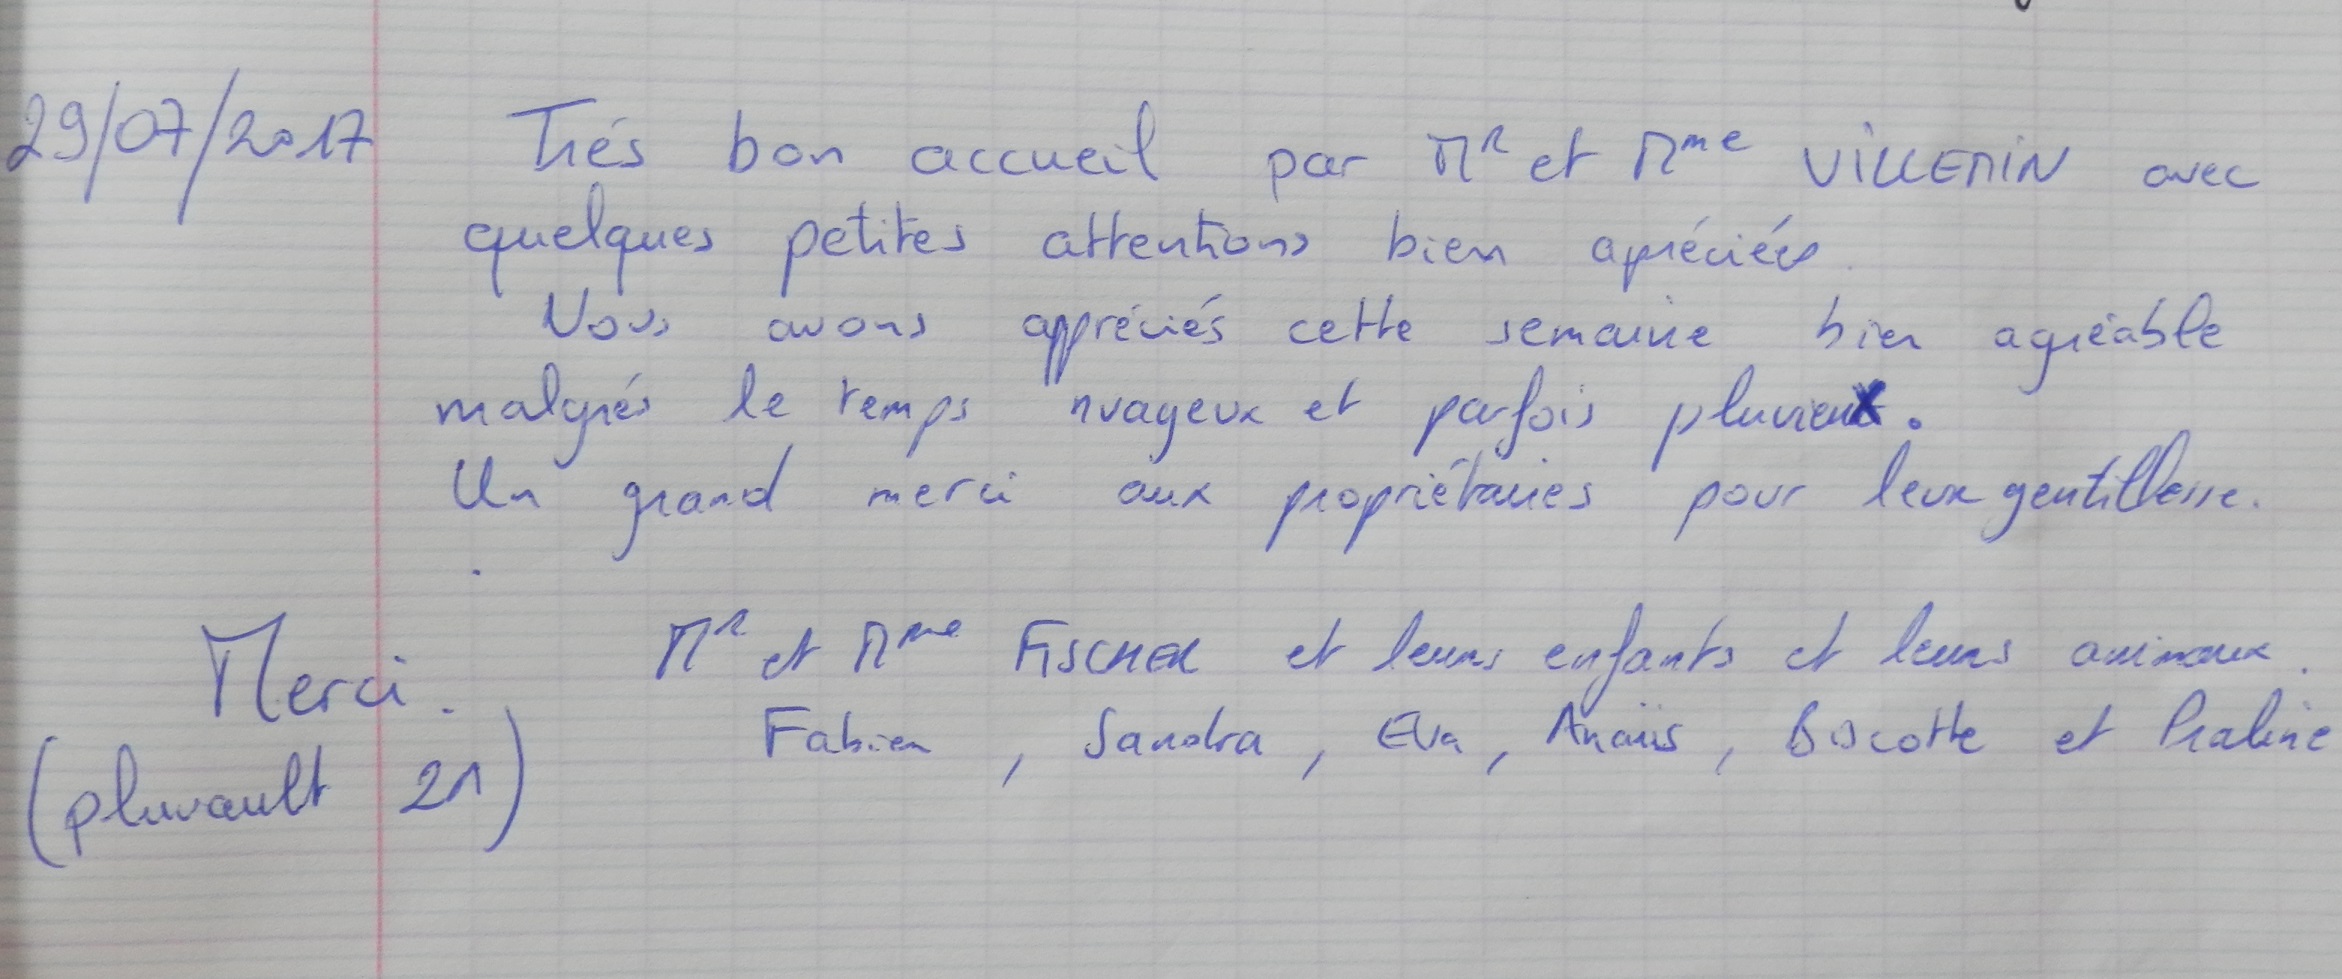 29/07/2017 Trés bon accueil par Mr et Mme VILLEMIN avec
quelques petites attentions bien apréciées.
Nous avons appréciés cette semaine bien agréable
malgrés le temps nuageux et parfois pluvieux.
Un grand merci aux propriétaires pour leur gentillesse.
Merci. Mr et Mme FISCHER et leurs enfants et leurs animaux.
Fabien, Sandra, Eva, Anaïs, Biscotte et Praline
(pluvault 21)